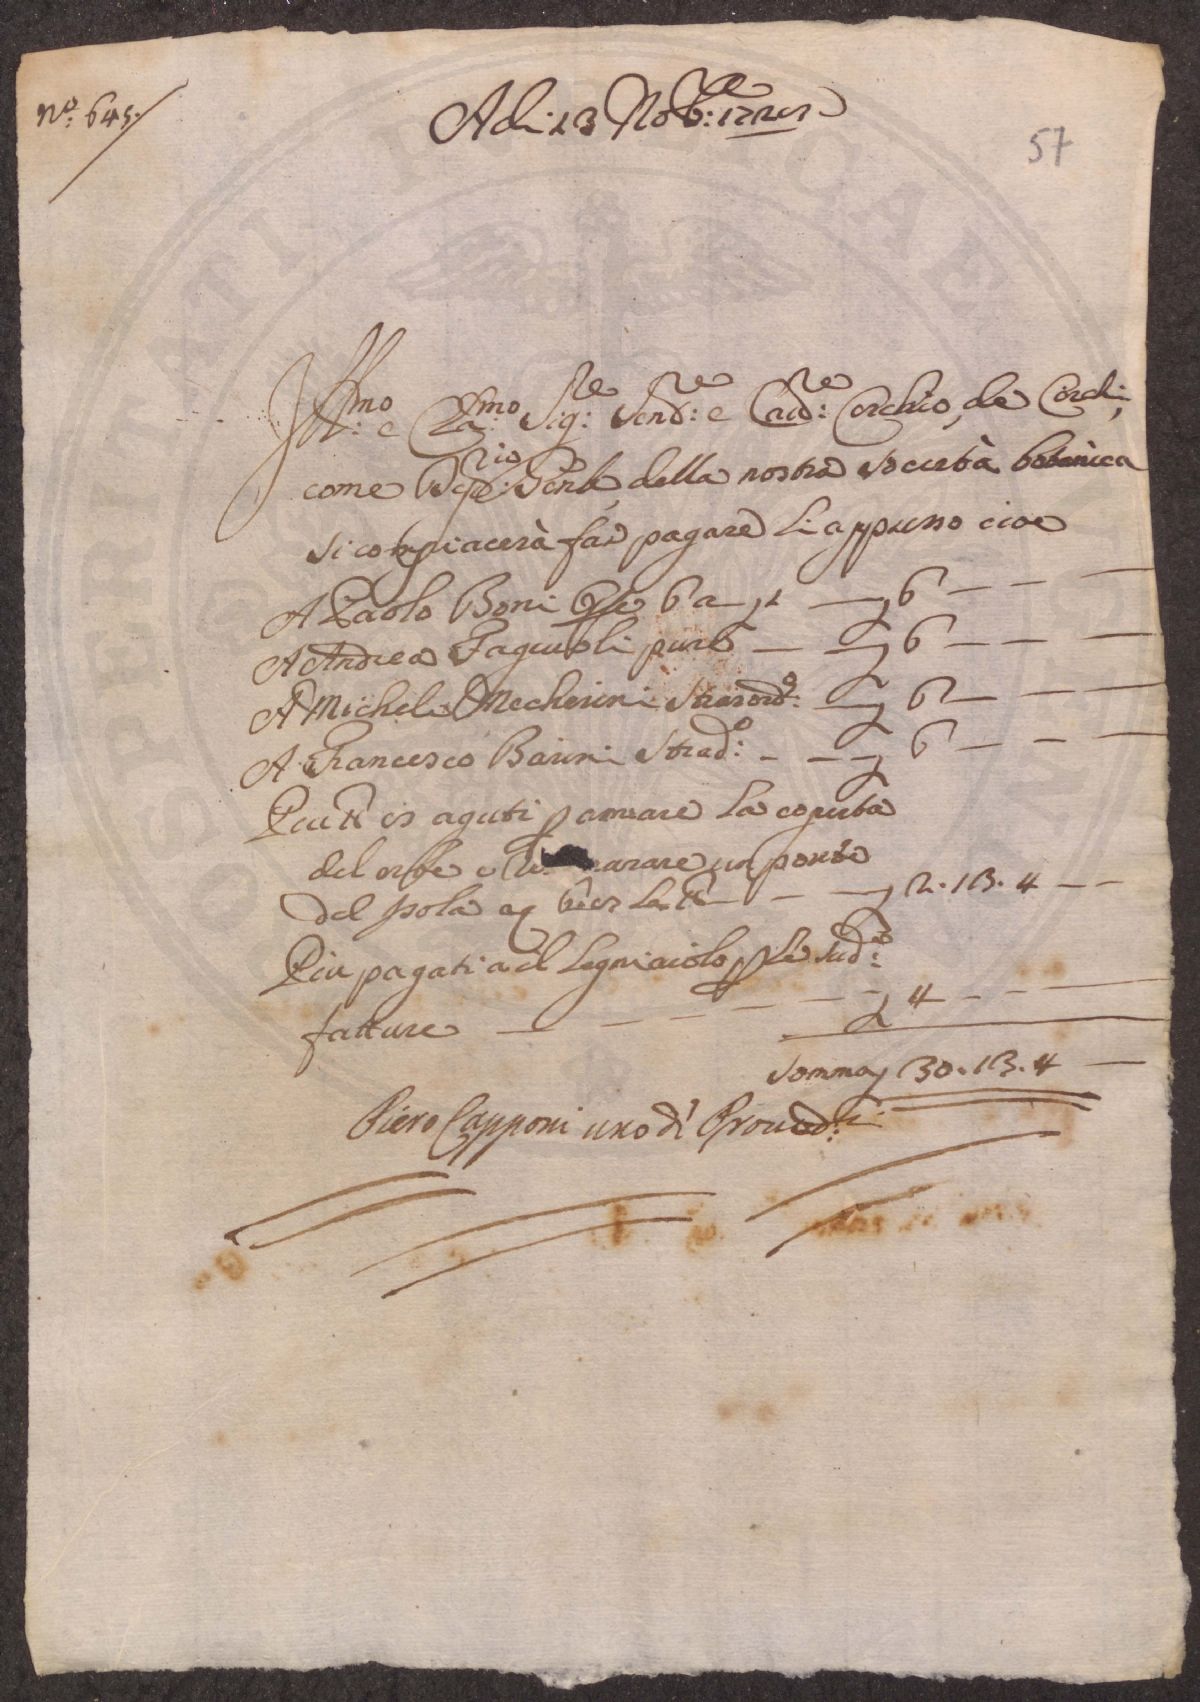 N.º 645.
Adi: 13 Nob:re
57
Ill:mo e Cla:mo Sig:re Send:re e Cavd:re Cerchio, de Cerchi,
come Seg:rio della nostra Società botanica
si compiacerà far pagare li appresso cioe
A Paolo Boni 6 6
A Andrea Faguoli pure 6
A Michele Mecherini Straord:o 6
A Francesco Barini Strad:o 6
Piu aguti p armare la coperta
del e un ponte
del Isola 2.13.4
Piu pagati a il Legniaiolo p le sud:e
fatture 4
Somma 30.13.4
Piero Capponi uno di Proved:ri